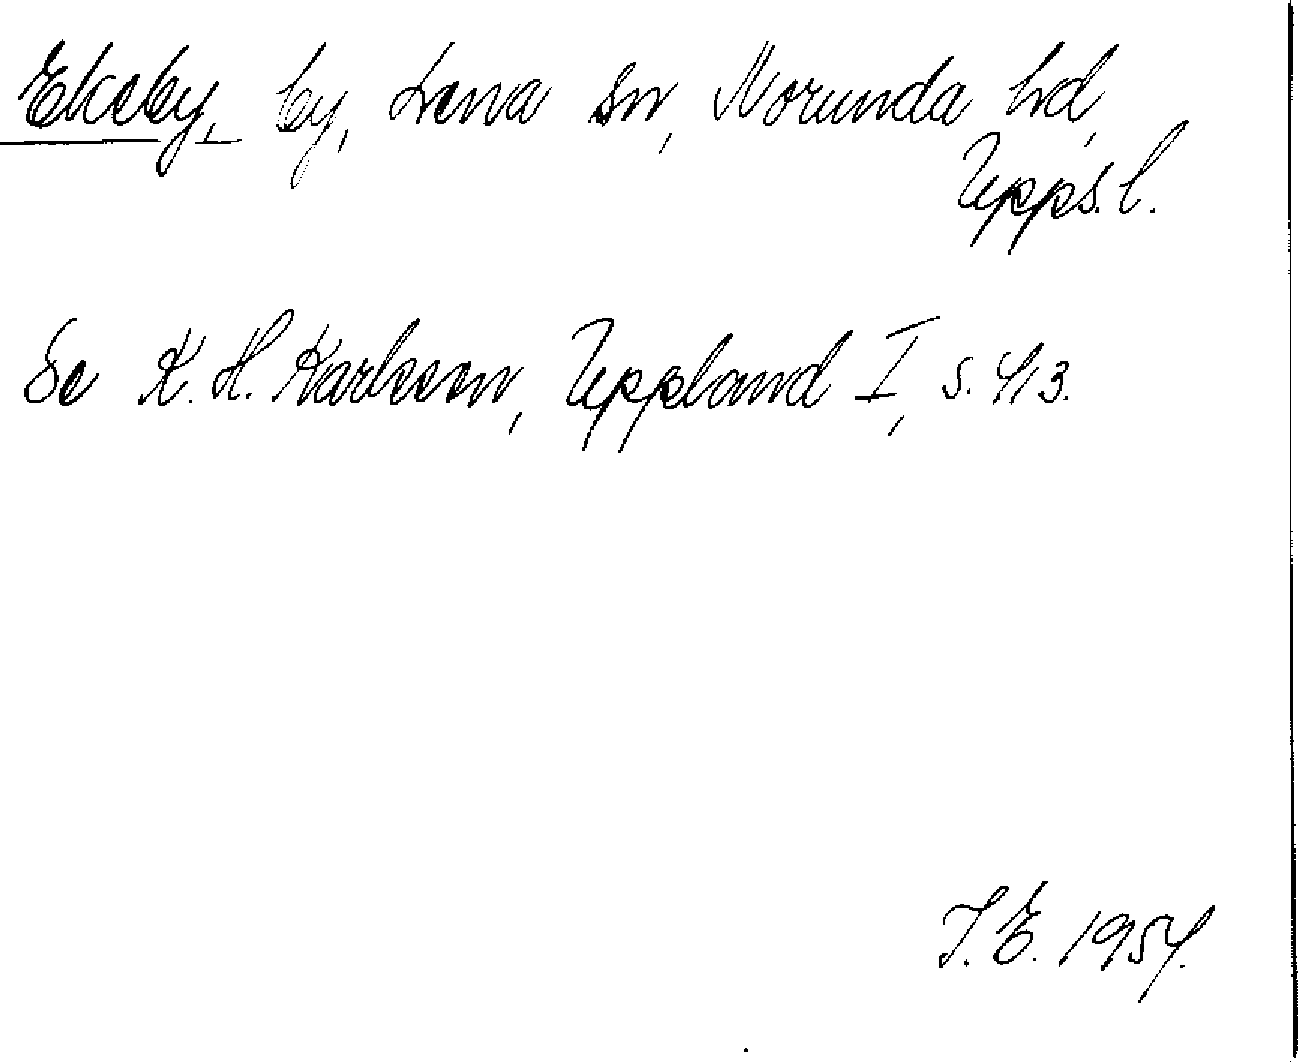 Ekeby, by, Lena sn, Norunda hd,
Upps. l.
Se K. H. Karlsson, Uppland I, s. 413.
I. E. 1954.